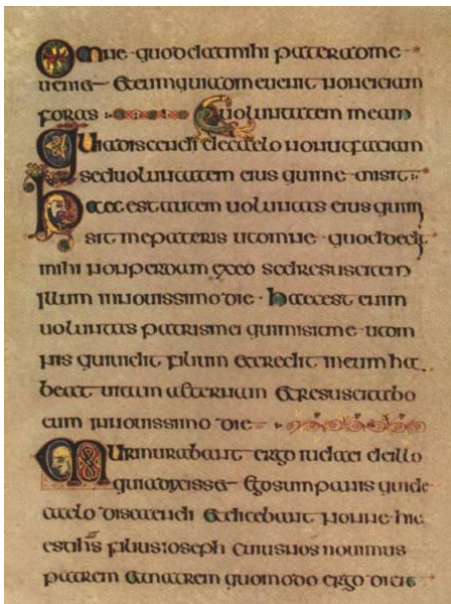 Omne quod dat mihi pater ad me
veniet et eum qui ad me venit non eiciam
foras voluntatem meam
Quia discendi de caelo non ut faciam
sed voluntatem eius qui me misit
Haec est autem voluntas eius qui mi
sit me pateris ut omne quod dedit
mihi non perdam ex eo sed resuscitem
illum in novissimo die Haec est enim
voluntas patris mei qui misit me ut om
nis qui videt filium et credit in eum ha
beat vitam aeternam et resuscitabo
eum in novissimo die
Murmurabant ergo iudaei de illo
quia dixisset ego sum panis qui de
caelo discendi et dicebant nonne hic
est ihs filius ioseph cuius nos novimus
patrem et matrem quomodo ergo dicit